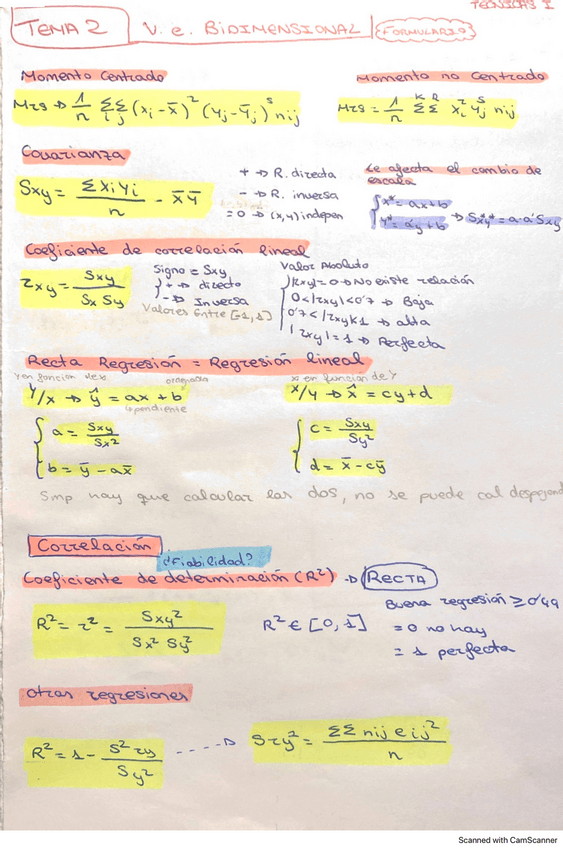 TECNICAS I
TEMA 2 V. e. BIDIMENSIONAL (FORMULARIO)
Momento Centrado
Mrs → 1/n ΣiΣj (xi - x̄)^2 (yj - ȳj)^s nij
Momento no Centrado
Mrs = 1/n Σ^K Σ^R xi^r yj^s nij
Covarianza
Sxy = Σxiyi/n - x̄ȳ
+ → R. directa
- → R. inversa
= 0 → (x,y) indepen
Le afecta el cambio de escala
{ x* = ax+b
{ y* = a'y+b → Sx*y* = a·a'Sxy
Coeficiente de correlación lineal
rxy = Sxy / Sx Sy
Signo = Sxy
{ + → directo
{ - → Inversa
Valores Entre [-1,1]
Valor Absoluto
|rxy| = 0 → No existe relación
0 < |rxy| < 0'7 → Baja
0'7 < |rxy| < 1 → alta
|rxy| = 1 → Perfecta
Recta Regresión = Regresión lineal
Y en función de x
Y/x → ŷ = ax + b
ordenada
pendiente
{ a = Sxy / Sx²
{ b = ȳ - ax̄
x en función de Y
x/y → x̂ = cy + d
{ c = Sxy / Sy²
{ d = x̄ - cȳ
Smp hay que calcular las dos, no se puede cal despejand
Correlación
¿Fiabilidad?
Coeficiente de determinación (R²) → RECTA
R² = r² = Sxy² / Sx² Sy²
R² ∈ [0,1]
Buena regresión ≥ 0'49
= 0 no hay
= 1 perfecta
Otras regresiones
R² = 1 - S²ry / Sy² ----→ Sry² = ΣΣ nij eij² / n
Scanned with CamScanner